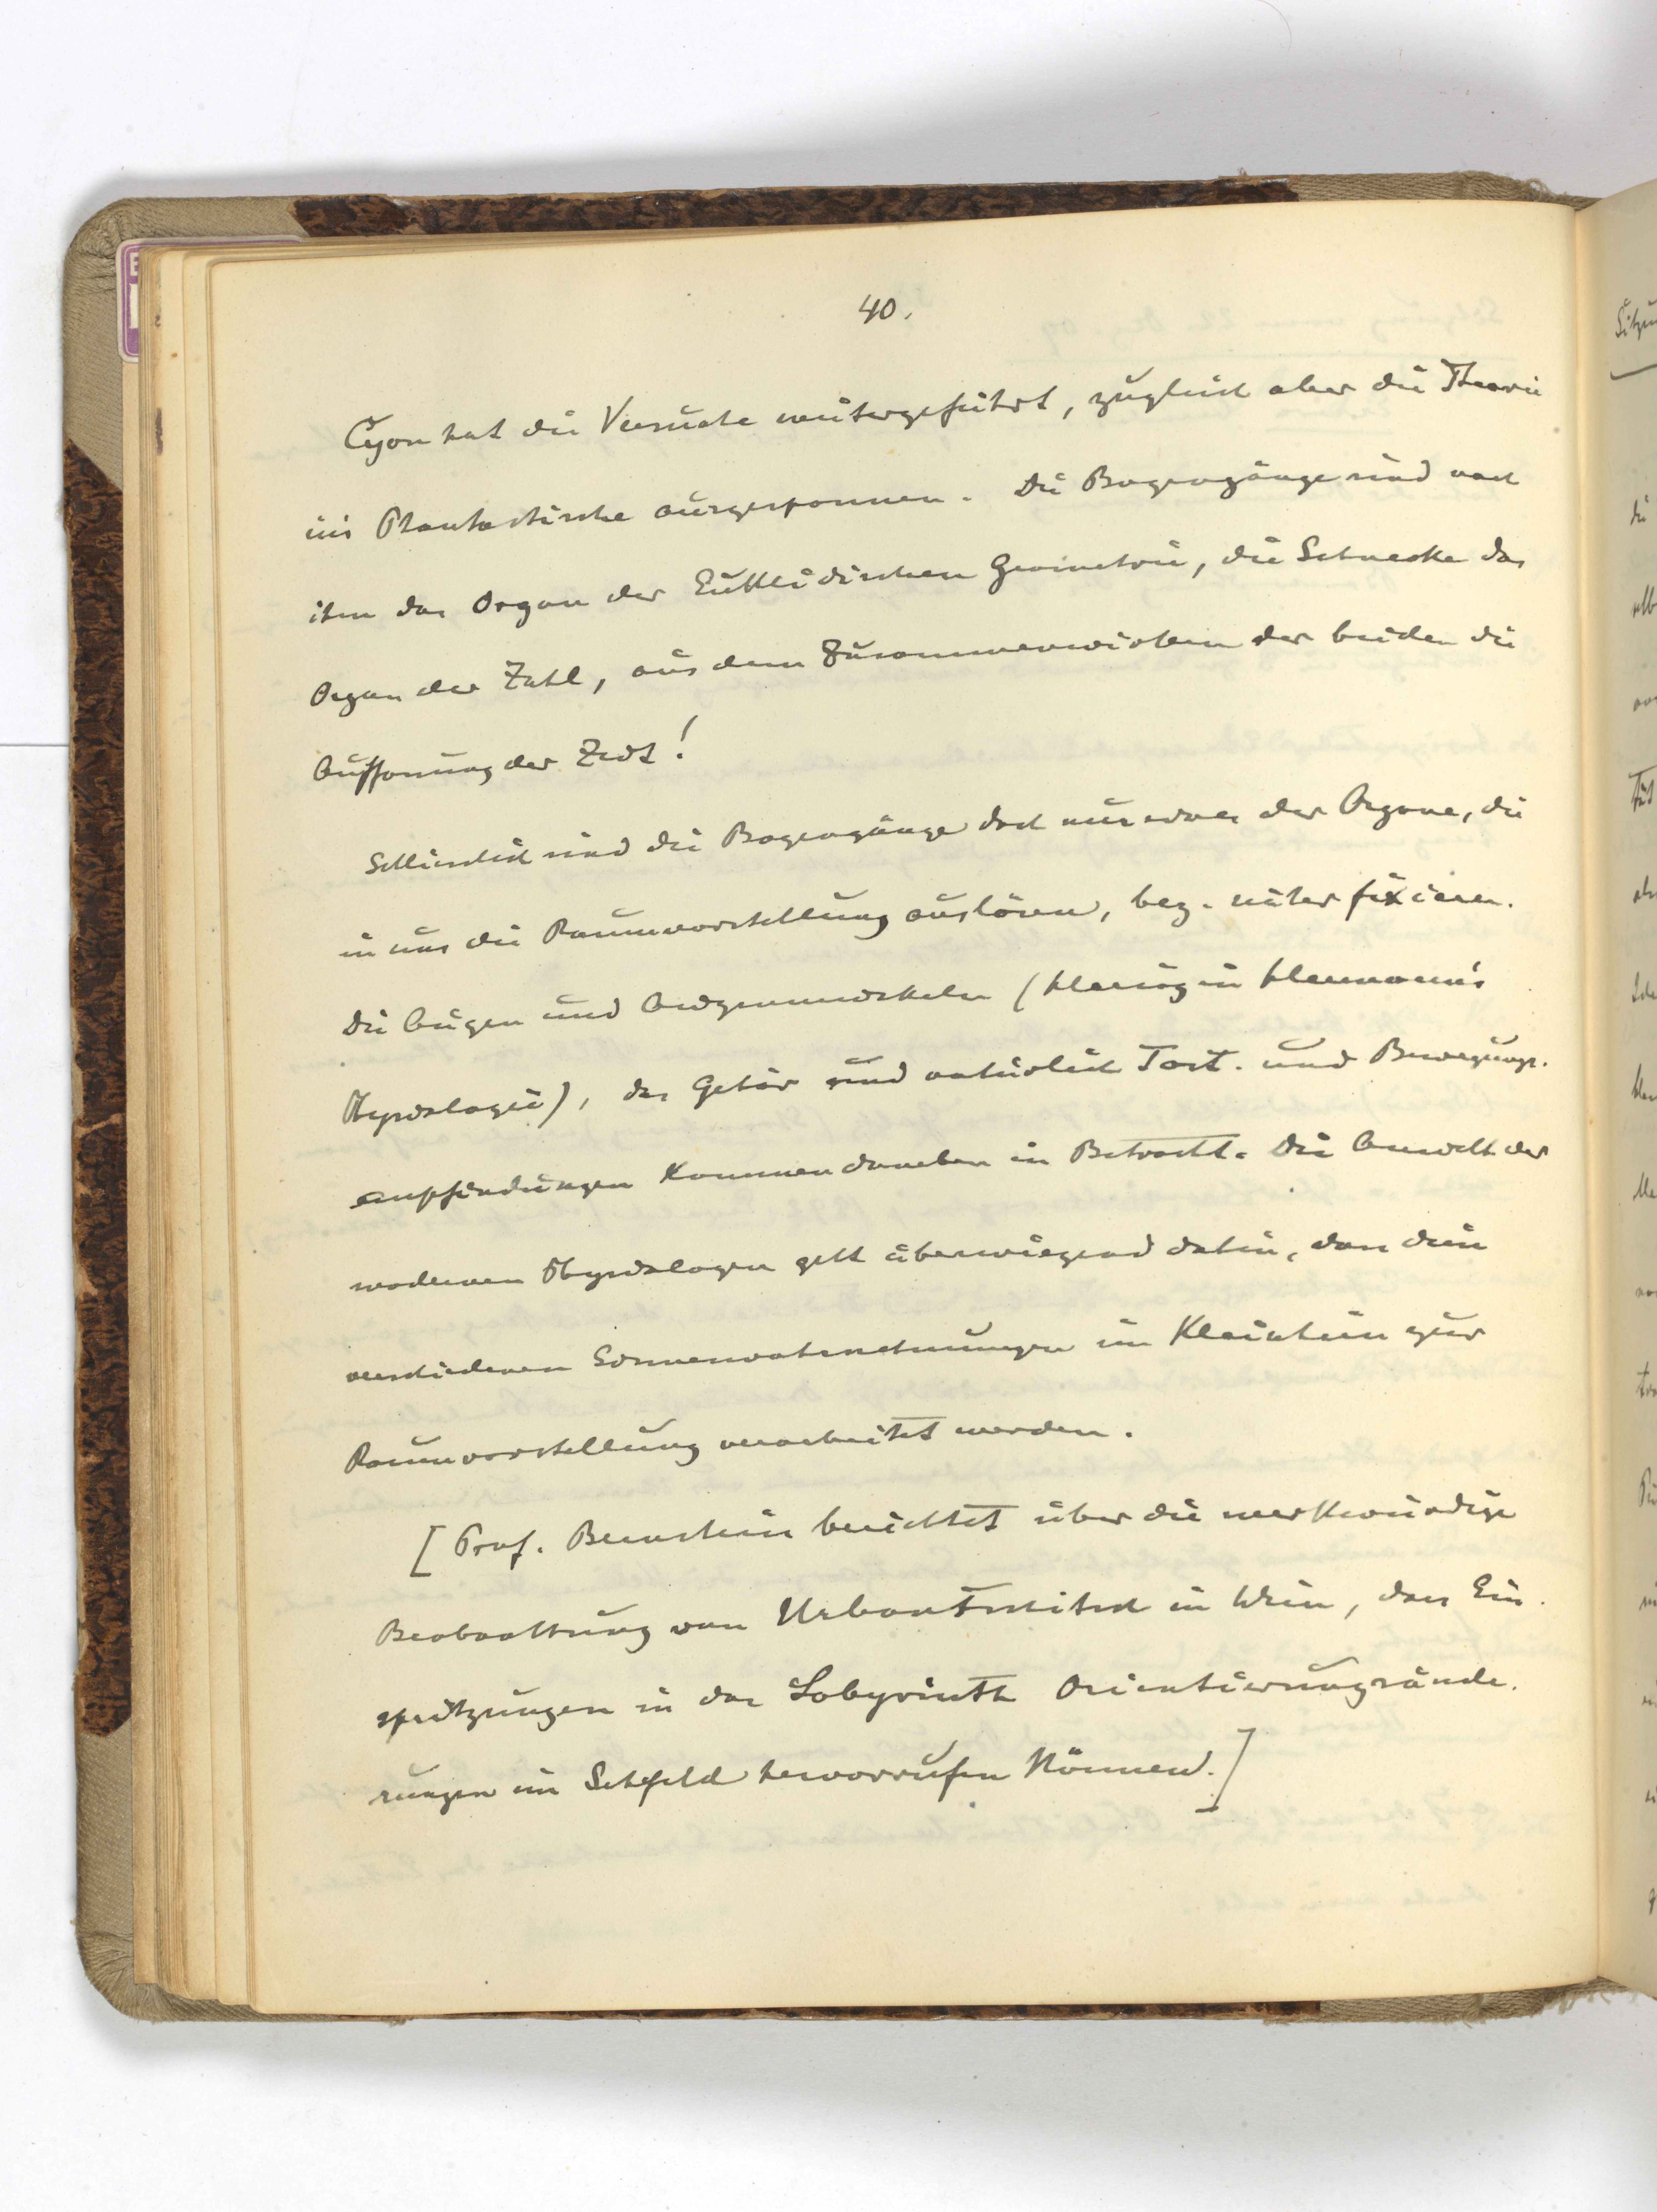 40.
Cyon hat die Versuche weitergeführt, zugleich aber die Theorie
ins Phantastische ausgesponnen. Die Bogengänge sind nach
ihm das Organ der Euklidischen Geometrie, die Schnecke das
Organ der Zahl, aus dem Zusammenwirken der beiden die
Auffassung der Zeit!
Schliesslich sind die Bogengänge doch nur eines der Organe, die
in uns die Raumvorstellung auslösen, bez. näher fixieren.
Die Augen und Augenmuskeln (Hering in Hermann's
Physiologie), das Gehör und natürlich Tast- und Bewegungs-
empfindungen kommen daneben in Betracht. Die Ansicht der
modernen Physiologen geht überwiegend dahin, dass diese
verschiedenen Sinneswahrnehmungen im Kleinhirn zur
Raumvorstellung verarbeitet werden.
[Prof. Bernstein berichtet über die merkwürdige
Beobachtung von Urbantschitsch in Wien, dass Ein-
spritzungen in das Labyrinth Orientierungsände-
rungen im Sehfeld hervorrufen können.]
Sitzu